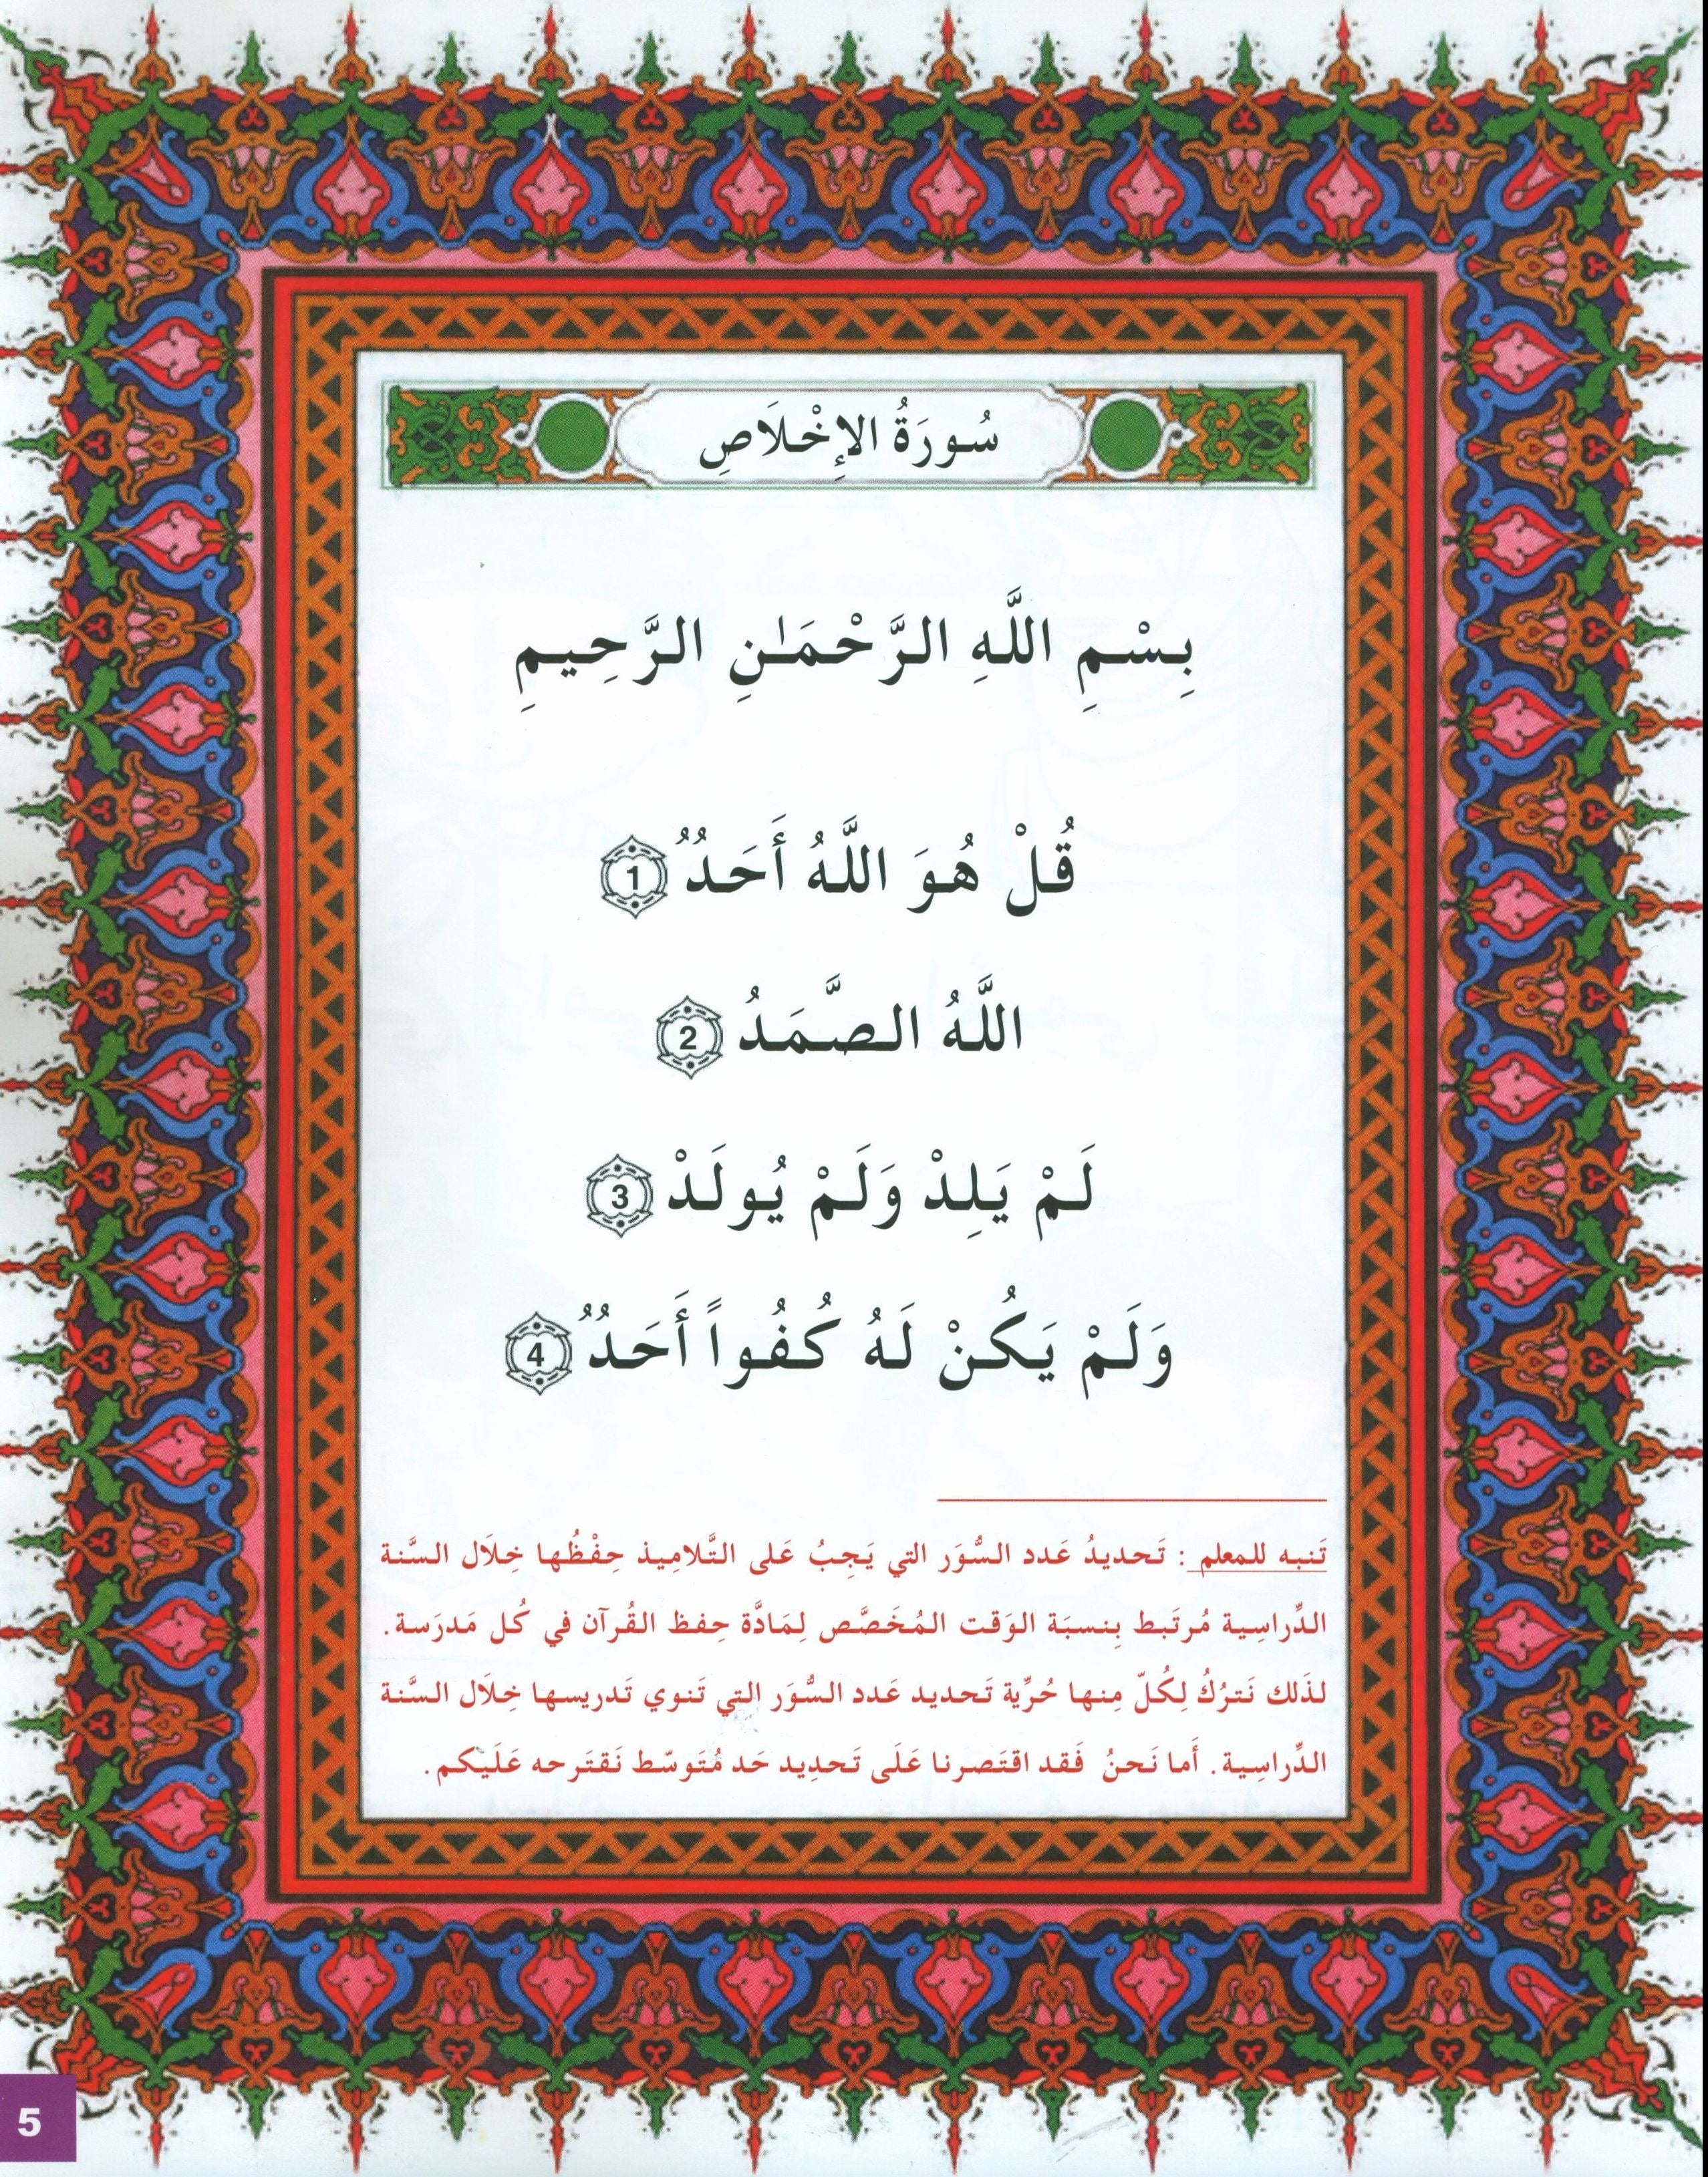 سُورَةُ الإِخْلَاصِ
بِسْمِ اللَّهِ الرَّحْمَـٰنِ الرَّحِيمِ
قُلْ هُوَ اللَّهُ أَحَدٌ 1
اللَّهُ الصَّمَدُ 2
لَمْ يَلِدْ وَلَمْ يُولَدْ 3
وَلَمْ يَكُنْ لَهُ كُفُواً أَحَدٌ 4
تَنبه للمعلم : تَحديدُ عَدد السُّوَر التي يَجِبُ عَلى التَّلامِيذ حِفْظُها خِلَال السَّنة
الدِّراسِية مُرتَبط بِنسبَة الوَقت المُخَصَّص لِمَادَّة حِفظ القُرآن في كُل مَدرَسة.
لذَلك نَترُكُ لِكُلّ مِنها حُرِّية تَحديد عَدد السُّوَر التي تَنوي تَدريسها خِلَال السَّنة
الدِّراسِية. أَما نَحنُ فَقد اقتَصرنا عَلَى تَحدِيد حَد مُتَوسّط نَقتَرحه عَلَيكم.
5